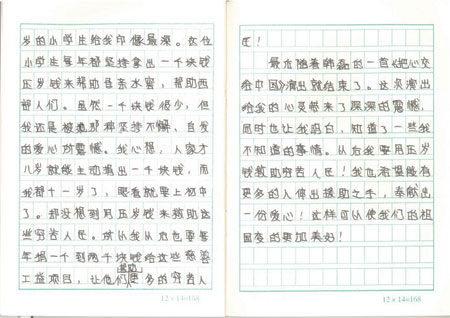 岁的小学生给我印像最深。这位
小学生每年都坚持拿出一千块钱
压岁钱来帮助母亲水窖，帮助西
部人们。虽然一千块钱很少，但
我还是被那种坚持不懈、自发
的爱心所震憾。我心想，人家才
八岁就能主动捐出一千块钱，而
我都十一岁了，眼看就要上初中
了。却没想到用压岁钱来救助这
些穷苦人民。所以我从此也要每
年捐一个到两千块钱给这些慈善
工益项目，让他们帮助更多的穷苦人
民！
最后随着韩磊的一首《把心交
给中国》演出就结束了。这次演出
给我的心灵带来了深深的震憾，
同时也让我明白，知道了一些我
不知道的事情。从后我要用压岁
钱救助穷苦人民！我也希望能有
更多的人伸出援助之手，奉献出
一份爱心！这样可以使我们的祖
国变的更加美好！
12×14=168
12×14=168